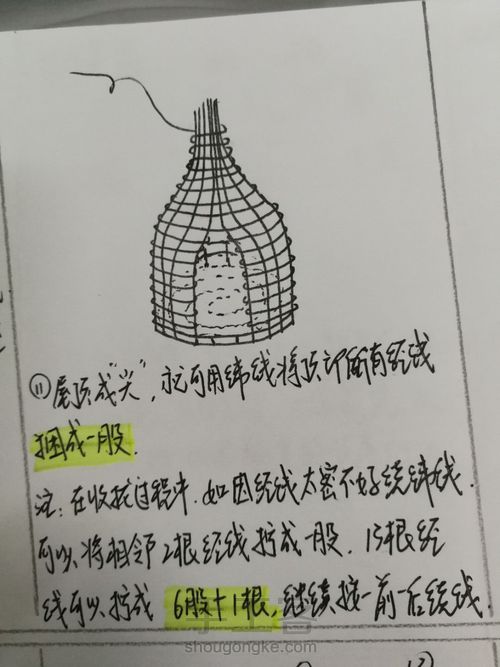 ⑪屋顶成"尖",就可用纬线将顶部所有经线
捆成一股.
注:在收拢过程中.如因经线太密不好绕纬线.
可以将相邻2根经线拧成一股.13根经
线可以拧成 6股+1根,继续按一前一后绕线.
shougongke.com